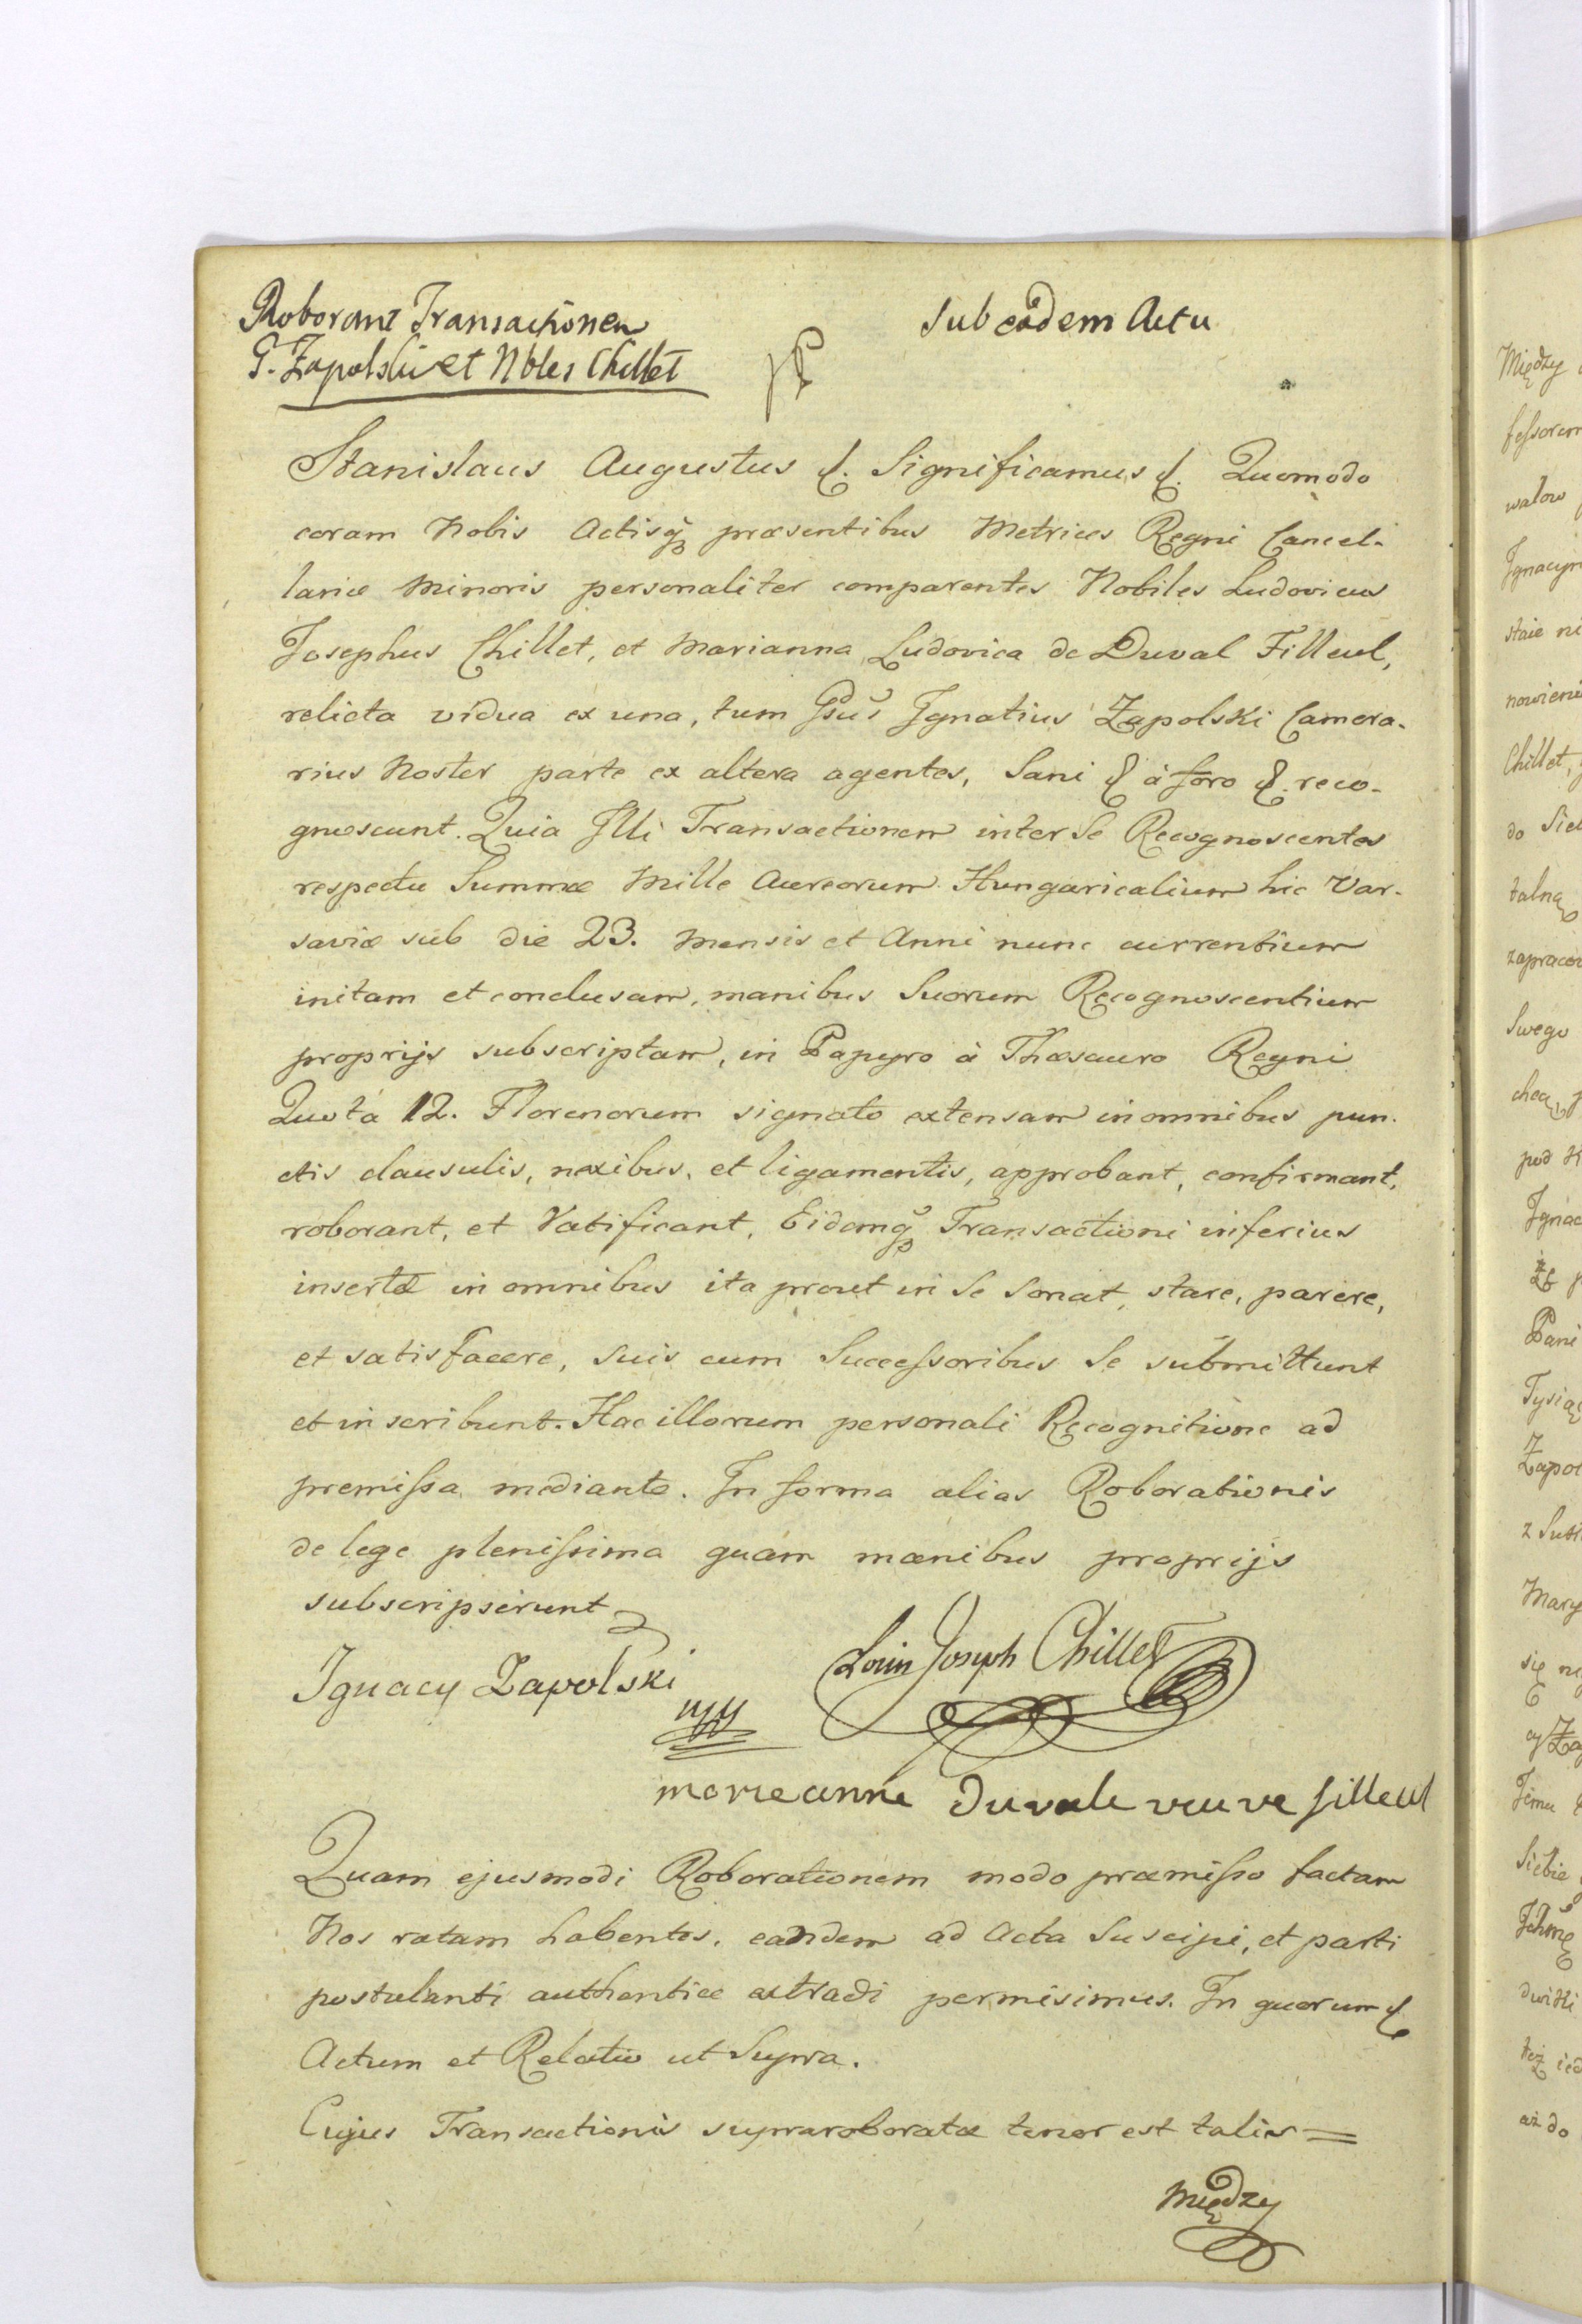 Roborant Transactionem
G. Zapolski et Nbles Chillet
Sub eodem Actu
Stanislaus Augustus &. Significamus &. Quomodo
coram Nobis Actisq, præsentibus Metrices Regni Cancel-
lariæ Minoris personaliter comparentes Nobiles Ludovicus
Josephus Chillet, et Marianna Ludovica de Duval Filleul,
relicta vidua ex una, tum Gsus Ignatius Zapolski Camera-
rius Noster parte ex altera agentes, Sani & à foro &. reco-
gnoscunt. Quia Illi Transactionem inter Se Recognoscentes
respectu Summæ Mille Aureorum Hungaricalium hic Var-
saviæ sub die 23. Mensis et Anni nunc currentium
initam et conclusam, manibus Suorum Recognoscentium
proprijs subscriptam, in Papyro à Thæsauro Regni
Quotâ 12. Florenorum signato extensam in omnibus pun-
ctis clausulis, nexibus, et ligamentis, approbant, confirmant,
roborant, et Ratificant, Eidemq, Transactioni inferius
insertæ in omnibus ita prout in Se Sonat, stare, parere,
et satisfacere, Suis cum Successoribus Se submittunt
et inscribunt. Hac illorum personali Recognitione ad
premissa mediante. In forma alias Roborationis
de lege plenissima quam manibus proprijs
subscripserunt
Ignacy Zapolski
mp
Louis Joseph Chillet
marieanne duvale veuve filleul
Quam ejusmodi Roborationem modo præmisso factam
Nos ratam habentes, eandem ad Acta Suscipi, et parti
postulanti authentice extradi permisimus. In quorum &
Actum et Relatio ut Supra.
Cujus Transactionis supraroboratæ tenor est talis =
Między
Między
fessorem
walow
Ignacym
staie ni
nowieni
Chillet,
do Siel
talną
zapracow
Swego
checą, p
pod
Ignac
Pani
Tysiąc
Zapol
z Suk
Mary
się ni
cy Za
Jemu
Siebie
Ichmę
też ied
aż do